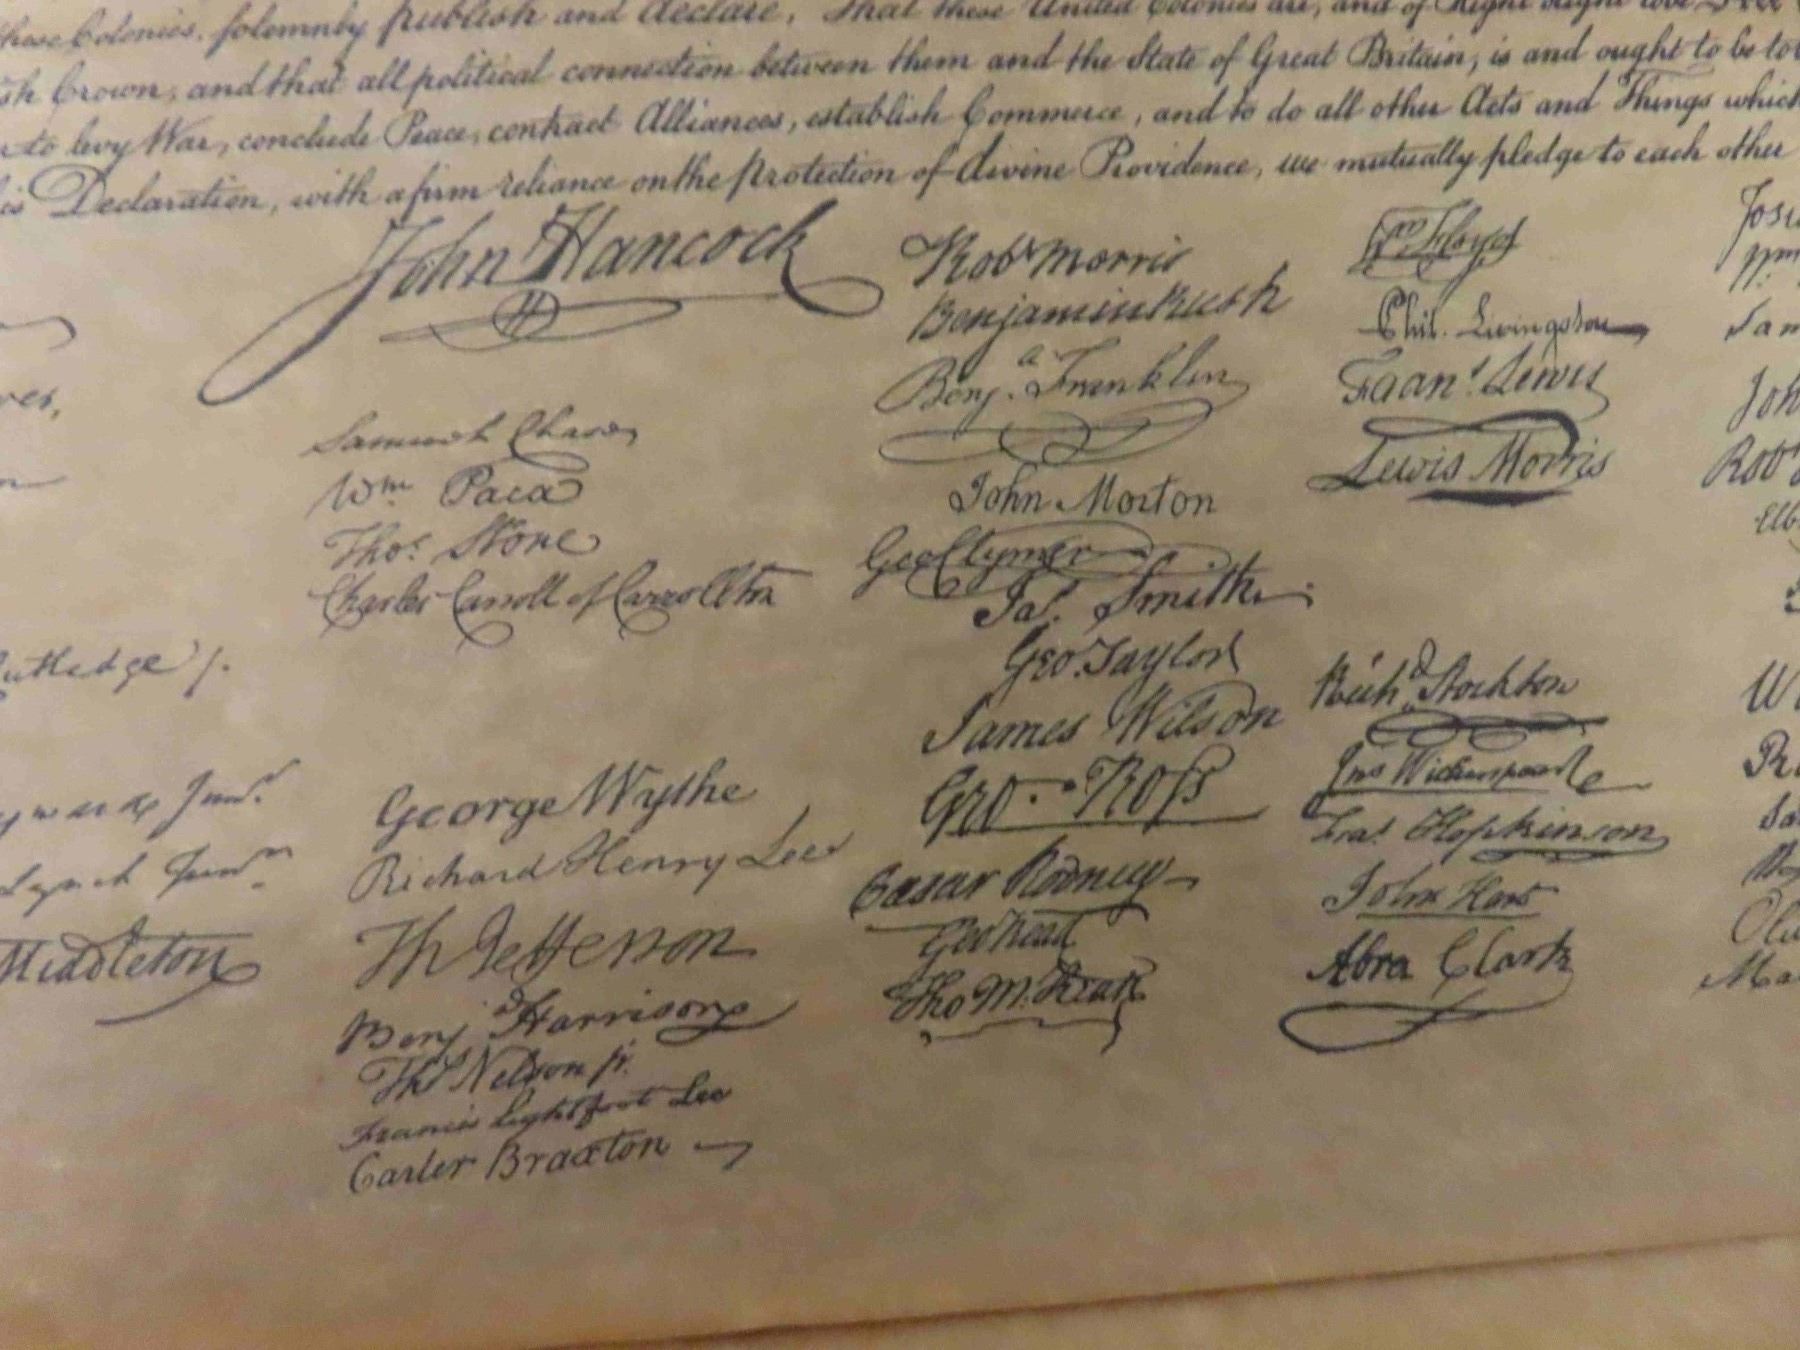 these Colonies, solemnly publish and declare, That these United Colonies are, and of Right ought to be Free
sh Crown, and that all political connection between them and the State of Great Britain, is and ought to be tot
to levy War, conclude Peace, contract Alliances, establish Commerce, and to do all other Acts and Things which
is Declaration, with a firm reliance on the protection of divine Providence, we mutually pledge to each other
John Hancock
Samuel Chase
Wm Paca
Thos. Stone
Charles Carroll of Carrollton
utledge /.
yward Junr.
Lynch Junr.
Middleton
George Wythe
Richard Henry Lee
Th Jefferson
Benja Harrison
Thos Nelson jr.
Francis Lightfoot Lee
Carter Braxton
Robt Morris
Benjamin Rush
Benja. Franklin
John Morton
Geo Clymer
Jas. Smith.
Geo. Taylor
James Wilson
Geo. Ross
Caesar Rodney
Geo Read
Tho M. Kean
Wm Floyd
Phil. Livingston
Frans. Lewis
Lewis Morris
Richd. Stockton
Jno Witherspoon
Fras. Hopkinson
John Hart
Abra Clark
Josi
Wm
Sam
Joh
Robt
Elb
W
Ro
Sa
Oli
Ma